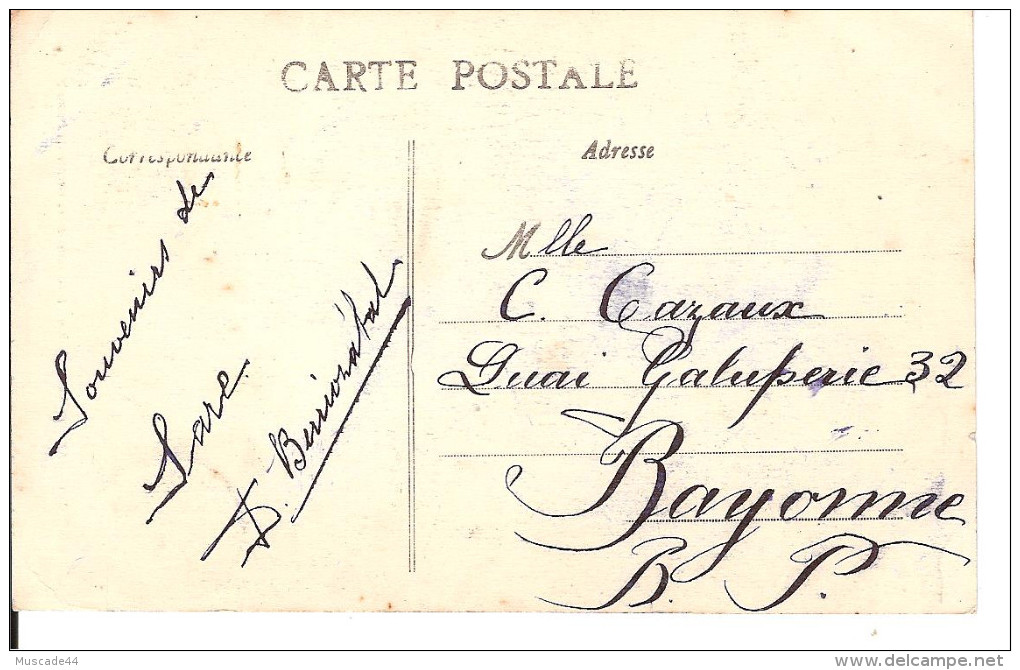 CARTE POSTALE
Correspondance
Adresse
Souvenirs de
Sare.
Mlle
C. Cazaux
Quai Galuperie 32
Bayonne
B. P.
Muscade44
www.delcampe.net